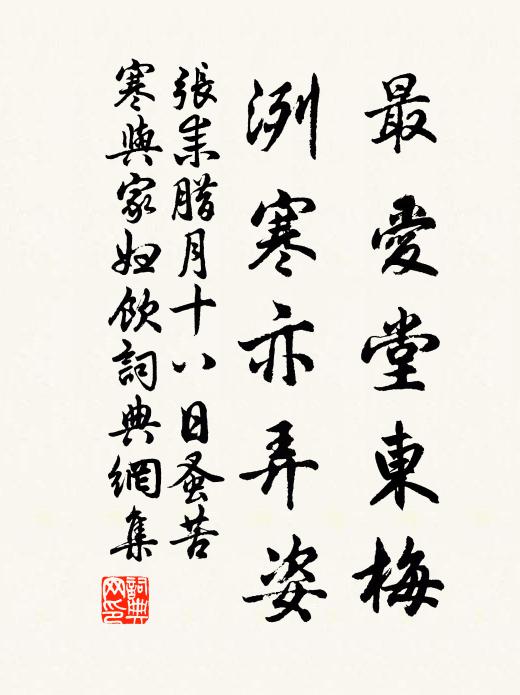 最愛堂東梅
洌寒亦弄姿
張耒腊月十八日蚤苦
寒與家妇飲詞典網集
詞典